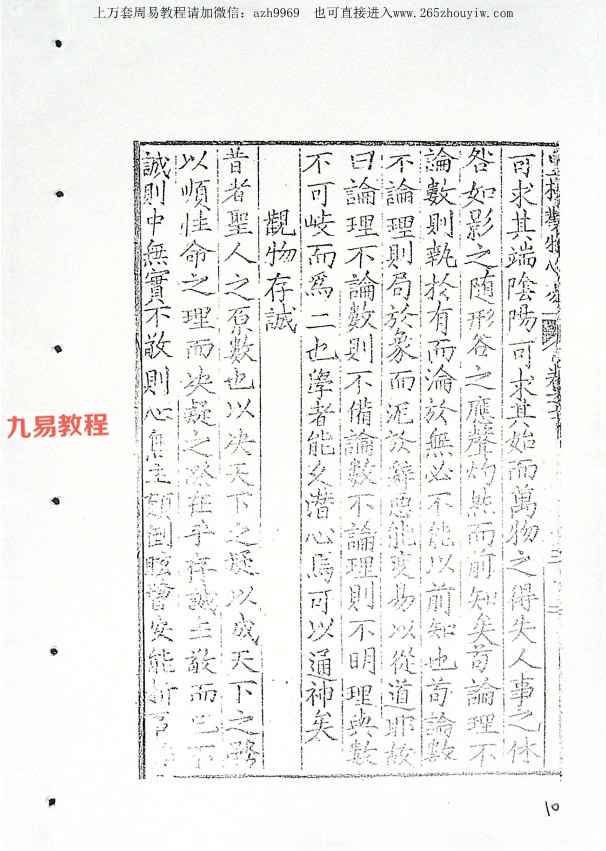 上万套周易教程请加微信：azh9969 也可直接进入www.265zhouyiw.com
可求其端陰陽可求其始而萬物之得失人事之休
咎如影之随形谷之應聲灼然而前知矣苟論理不
論數則執於有而淪於無必不能以前知也苟論數
不論理則局於象而泥於辭惡能變易以從道耶故
曰論理不論數則不備論數不論理則不明理與數
不可岐而爲二也學者能久潛心焉可以通神矣
觀物存誠
昔者聖人之 數也以决天下之疑以成天下之務
以順性命之理而决疑之 在乎存誠主敬而已不
誠則中無實不敬則心無主顛倒眩瞀安能
九易教程
10